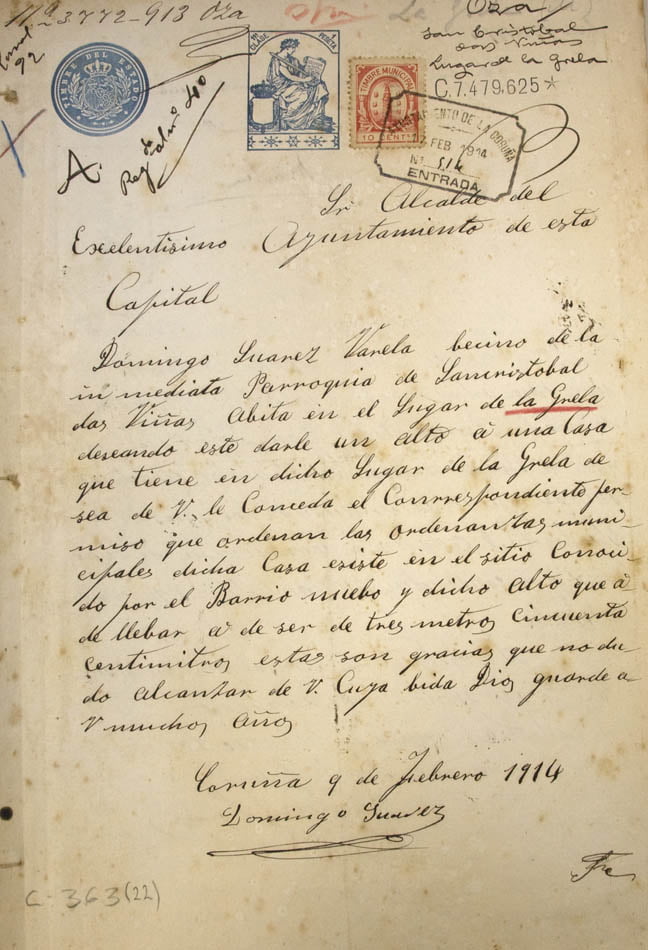 Nº 3772-913 Oza
Oza
San Cristobal
das Viñas
Lugar de la Grela
92
TIMBRE DEL ESTADO
11ª CLASE PESETA
TIMBRE MUNICIPAL
10 CENTS
C.7.479,625*
AYUNTAMIENTO DE LA CORUÑA
FEB 1914
Nº 514
ENTRADA
A.
Sr Alcalde del
Exelentisimo Ayuntamiento de esta
Capital
Domingo Suarez Varela becino de la
in mediata Parroquia de Sancristobal
das Viñas abita en el Lugar de la Grela
deseando este darle un alto á una Casa
que tiene en dicho Lugar de la Grela de
sea de V. le Conceda el Conrrespondiente per-
miso que ordenan las ordenantas muni-
cipales dicha Casa existe en el sitio Conoci-
do por el Barrio nuebo y dicho alto que á
de llebar á de ser de tres metros Cincuenta
Centimitros estas son gracias que no du
do alcantar de V. Cuya bida Dios guarde a
V muchos años
Coruña 9 de Febrero 1914
Domingo Suarez
C-363(22)